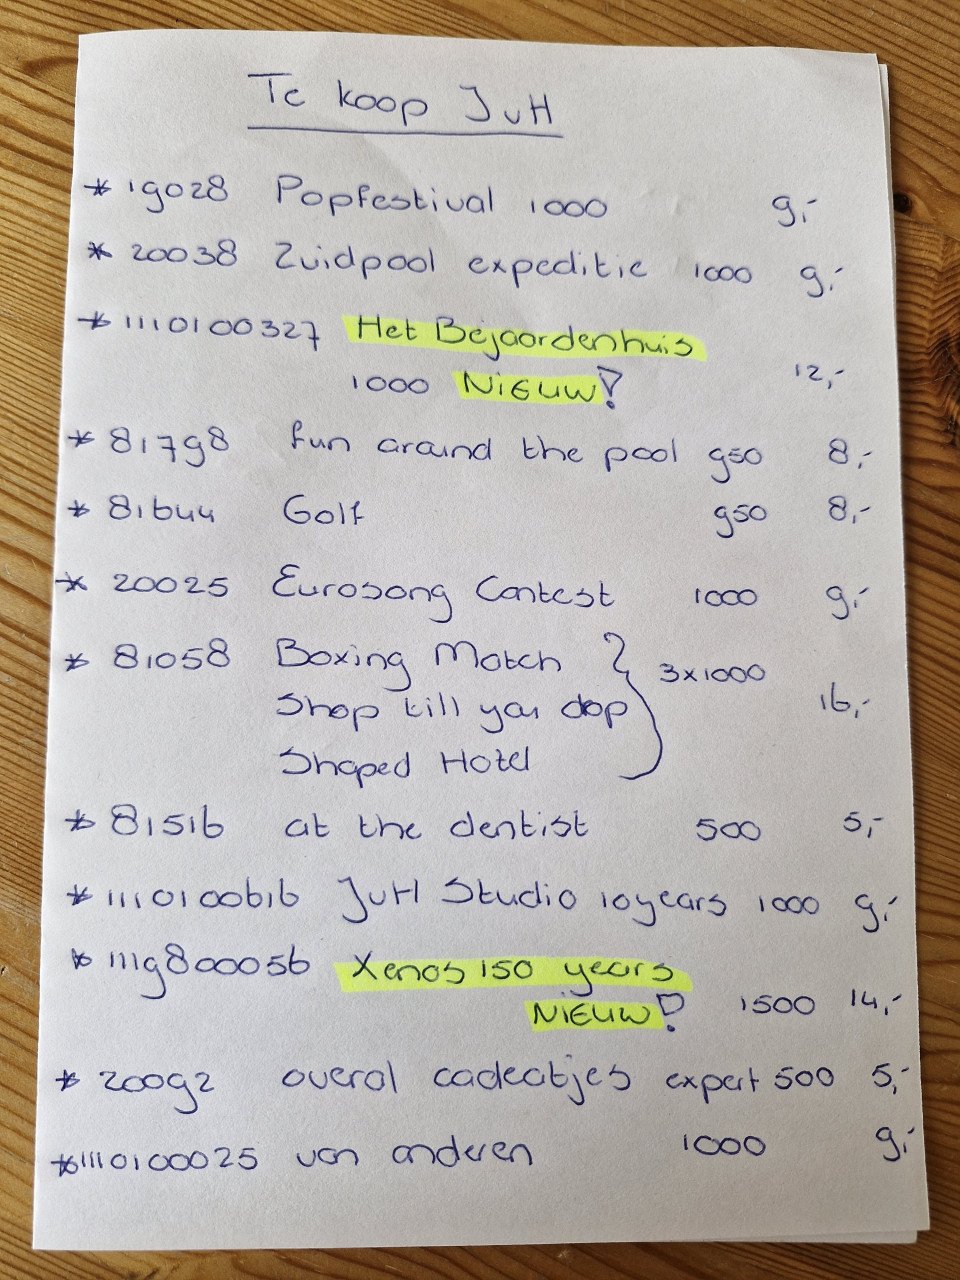 Te koop JvH
* 19028 Popfestival 1000 9,-
* 20038 Zuidpool expeditie 1000 9,-
* 1110100327 Het Bejaardenhuis
1000 NIEUW! 12,-
* 81798 fun around the pool 950 8,-
* 81644 Golf 950 8,-
* 20025 Eurosong Contest 1000 9,-
* 81058 Boxing Match } 3x1000
Shop till you dop 16,-
Shaped Hotel
* 81516 at the dentist 500 5,-
* 1110100616 JvH Studio 10 years 1000 9,-
* 1119800056 Xenos 150 years
NIEUW! 1500 14,-
* 20092 overal cadeatjes expert 500 5,-
* 1110100025 van anderen 1000 9,-